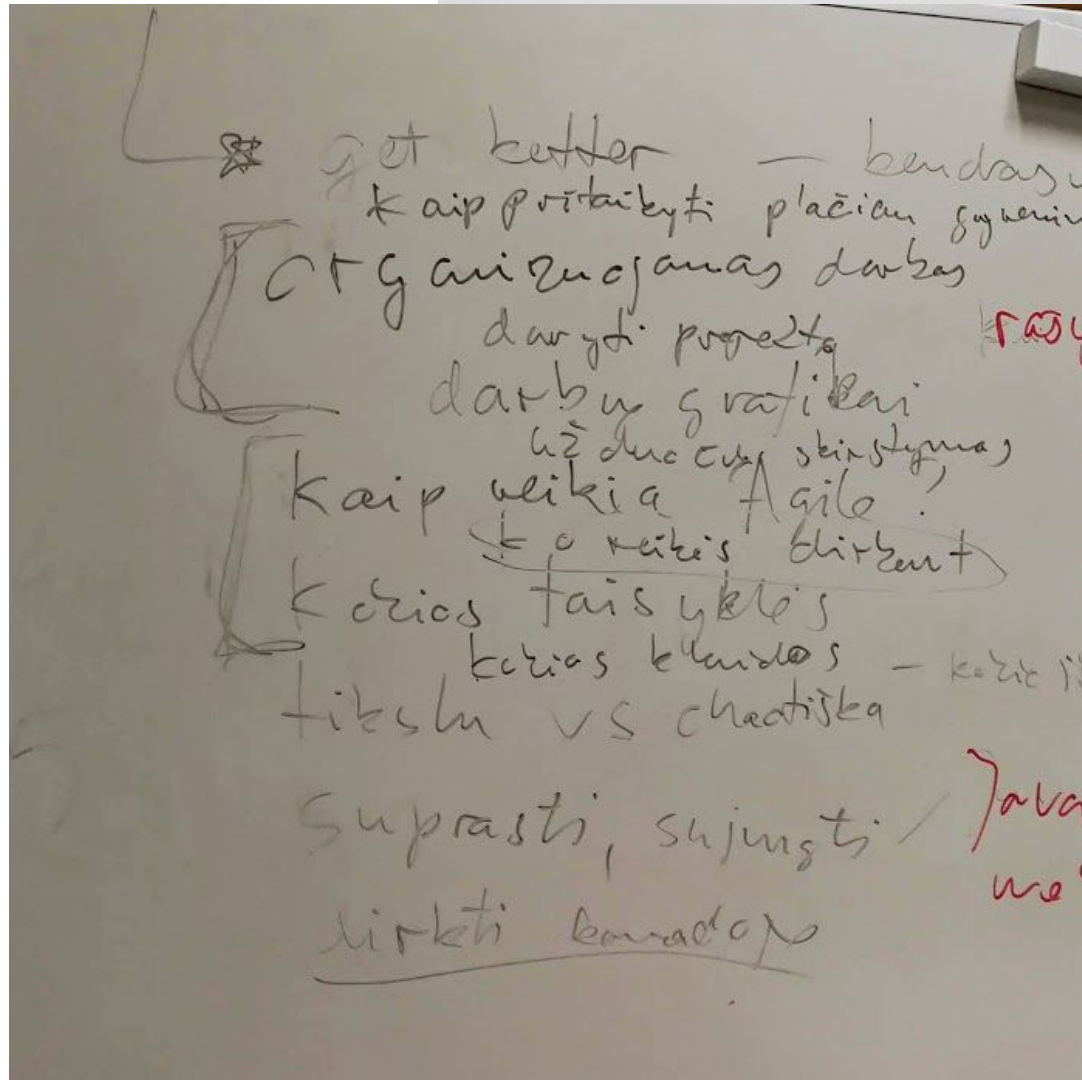 get better — bendras
kaip pritaikyti plačiau gyvenim
organizuojamas darbas
daryti projektą
rašy
darbų grafikai
užduočių skirstymas
Kaip veikia Agile?
ko reikės dirbant
Kokios taisyklės
kokias klaidos – kokie
tikslu vs chaotiška
suprasti, sujungti /
Java
dirbti komandoje